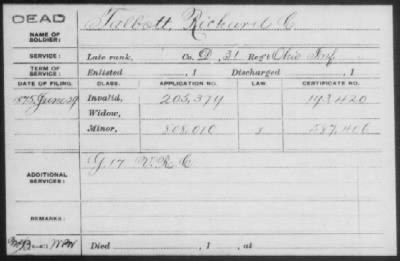 DEAD
Talbott, Richard C.
NAME OF SOLDIER:
SERVICE: Late rank, Co. D, 31 Reg't Ohio Inf.
TERM OF SERVICE: Enlisted , 1 Discharged , 1
DATE OF FILING. CLASS. APPLICATION NO. LAW. CERTIFICATE NO.
1875 June 29 Invalid, 205,379 193.420
Widow,
Minor, 808,010 587,406
ADDITIONAL SERVICES: G. 17 V. R. C
REMARKS:
Died , 1 , at